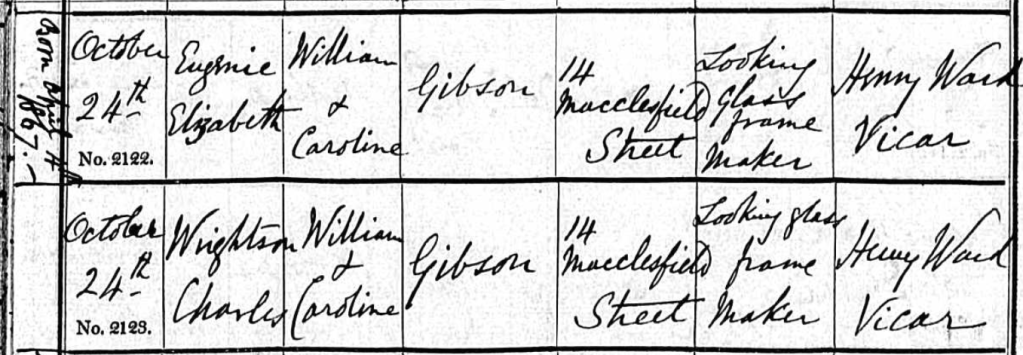 Born April 4th
1867.-
October
24th
No. 2122.
Eugenie
Elizabeth
William
&
Caroline
Gibson
14
Macclesfield
Street
Looking
Glass
frame
Maker
Henry Ward
Vicar
October
24th
No. 2123.
Wrightson
Charles
William
&
Caroline
Gibson
14
Macclesfield
Street
Looking glass
frame
Maker
Henry Ward
Vicar